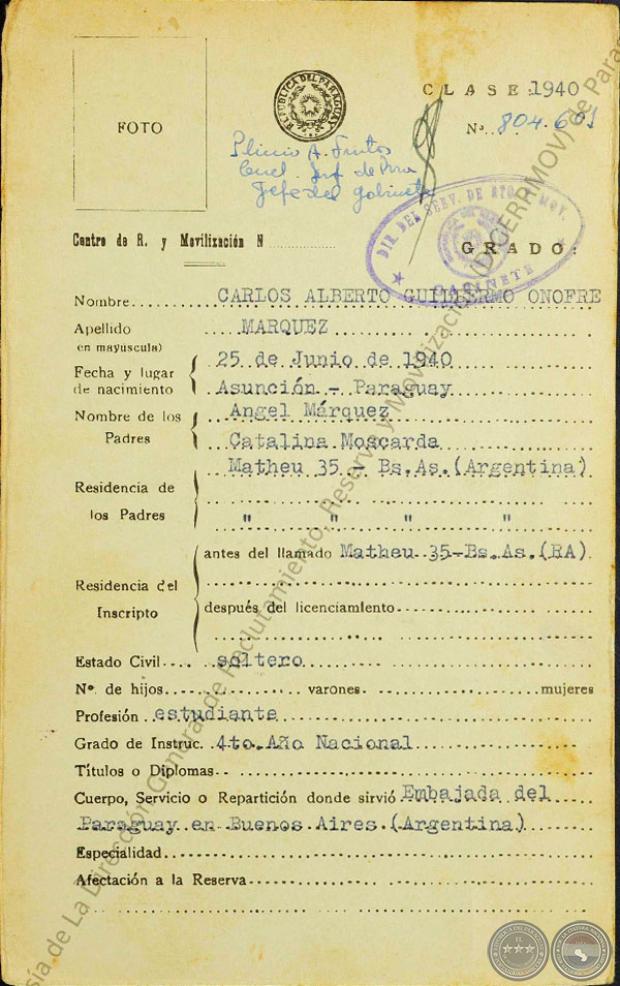 FOTO
REPUBLICA DEL PARAGUAY
CLASE 1940
Nº 804.601
Plinio A.
Cnel.
Jefe del gabinete
DIR. DEL SERV. DE RTO. Y MOV.
GABINETE
Centro de R. y Movilización N
GRADO:
Nombre CARLOS ALBERTO GUILLERMO ONOFRE
Apellido MARQUEZ
en mayúscula)
Fecha y lugar 25 de Junio de 1940
de nacimiento Asunción - Paraguay
Nombre de los Angel Márquez
Padres Catalina Moscarda
Matheu 35 - Bs.As.(Argentina)
Residencia de
los Padres " " " "
antes del llamado Matheu 35-Bs.As.(RA)
Residencia del
Inscripto después del licenciamiento
Estado Civil soltero
Nº de hijos varones mujeres
Profesión estudiante
Grado de Instruc. 4to.Año Nacional
Títulos o Diplomas
Cuerpo, Servicio o Repartición donde sirvió Embajada del
Paraguay en Buenos Aires.(Argentina)
Especialidad
Afectación a la Reserva
sía de La Dirección General de Reclutamiento, Reserva y Movilización (DIGERRMOV) de Para